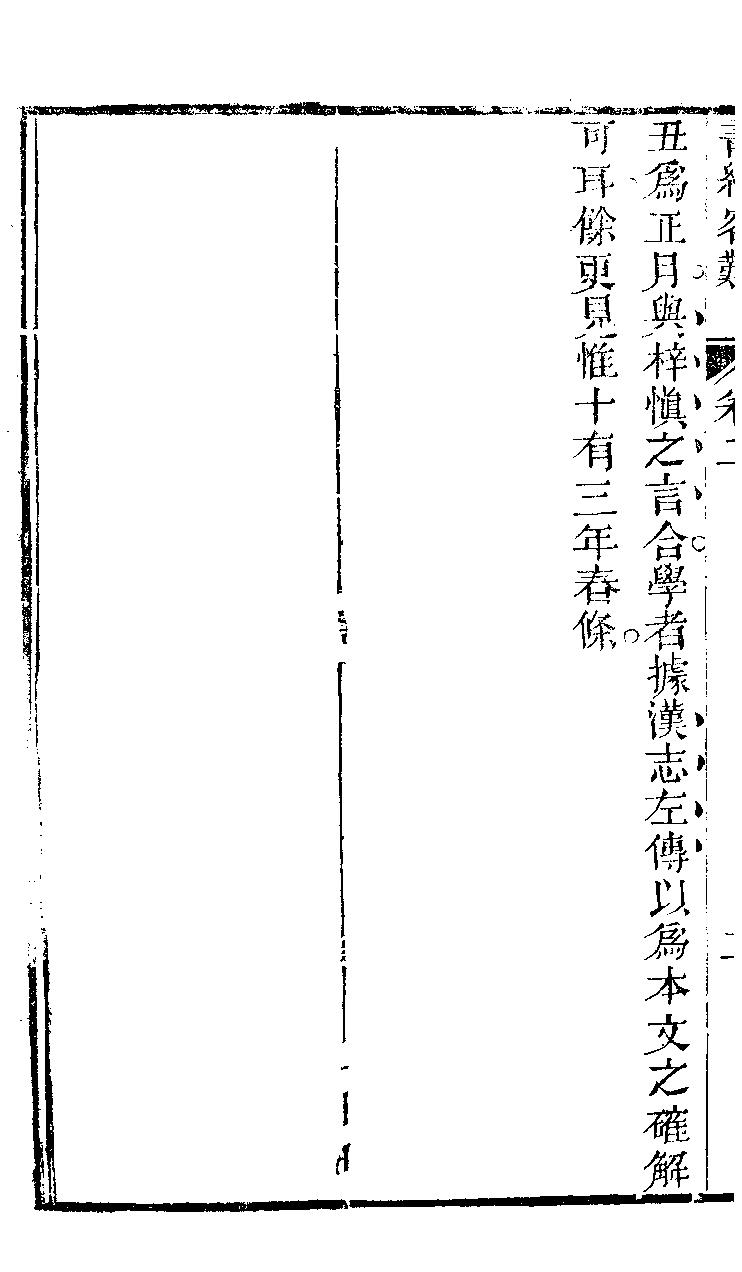 書經客難 卷二 二
丑爲正月與梓愼之言合學者據漢志左傳以爲本文之確解
可耳餘更見惟十有三年春條